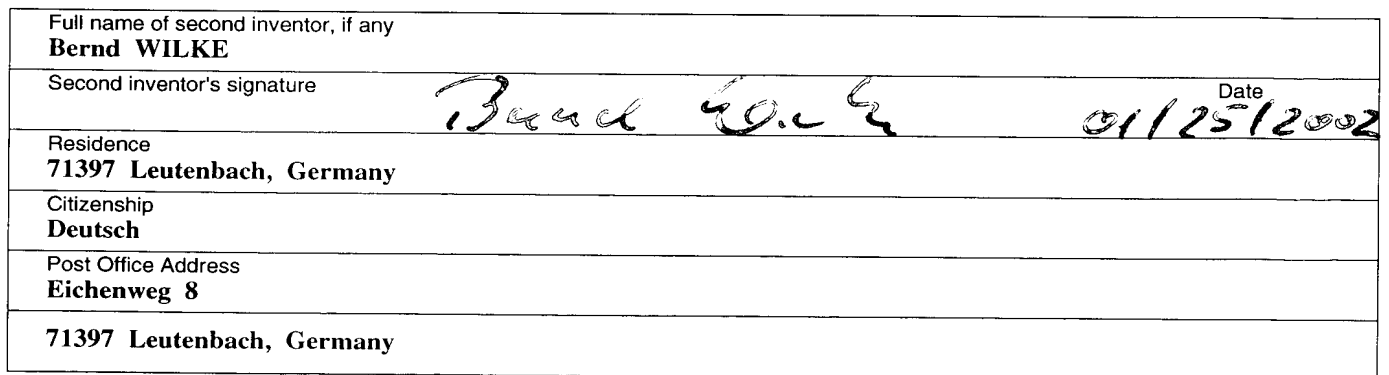 Full name of second inventor, if any
Bernd WILKE
Second inventor's signature Bernd Wilke Date
01/25/2002
Residence
71397 Leutenbach, Germany
Citizenship
Deutsch
Post Office Address
Eichenweg 8
71397 Leutenbach, Germany